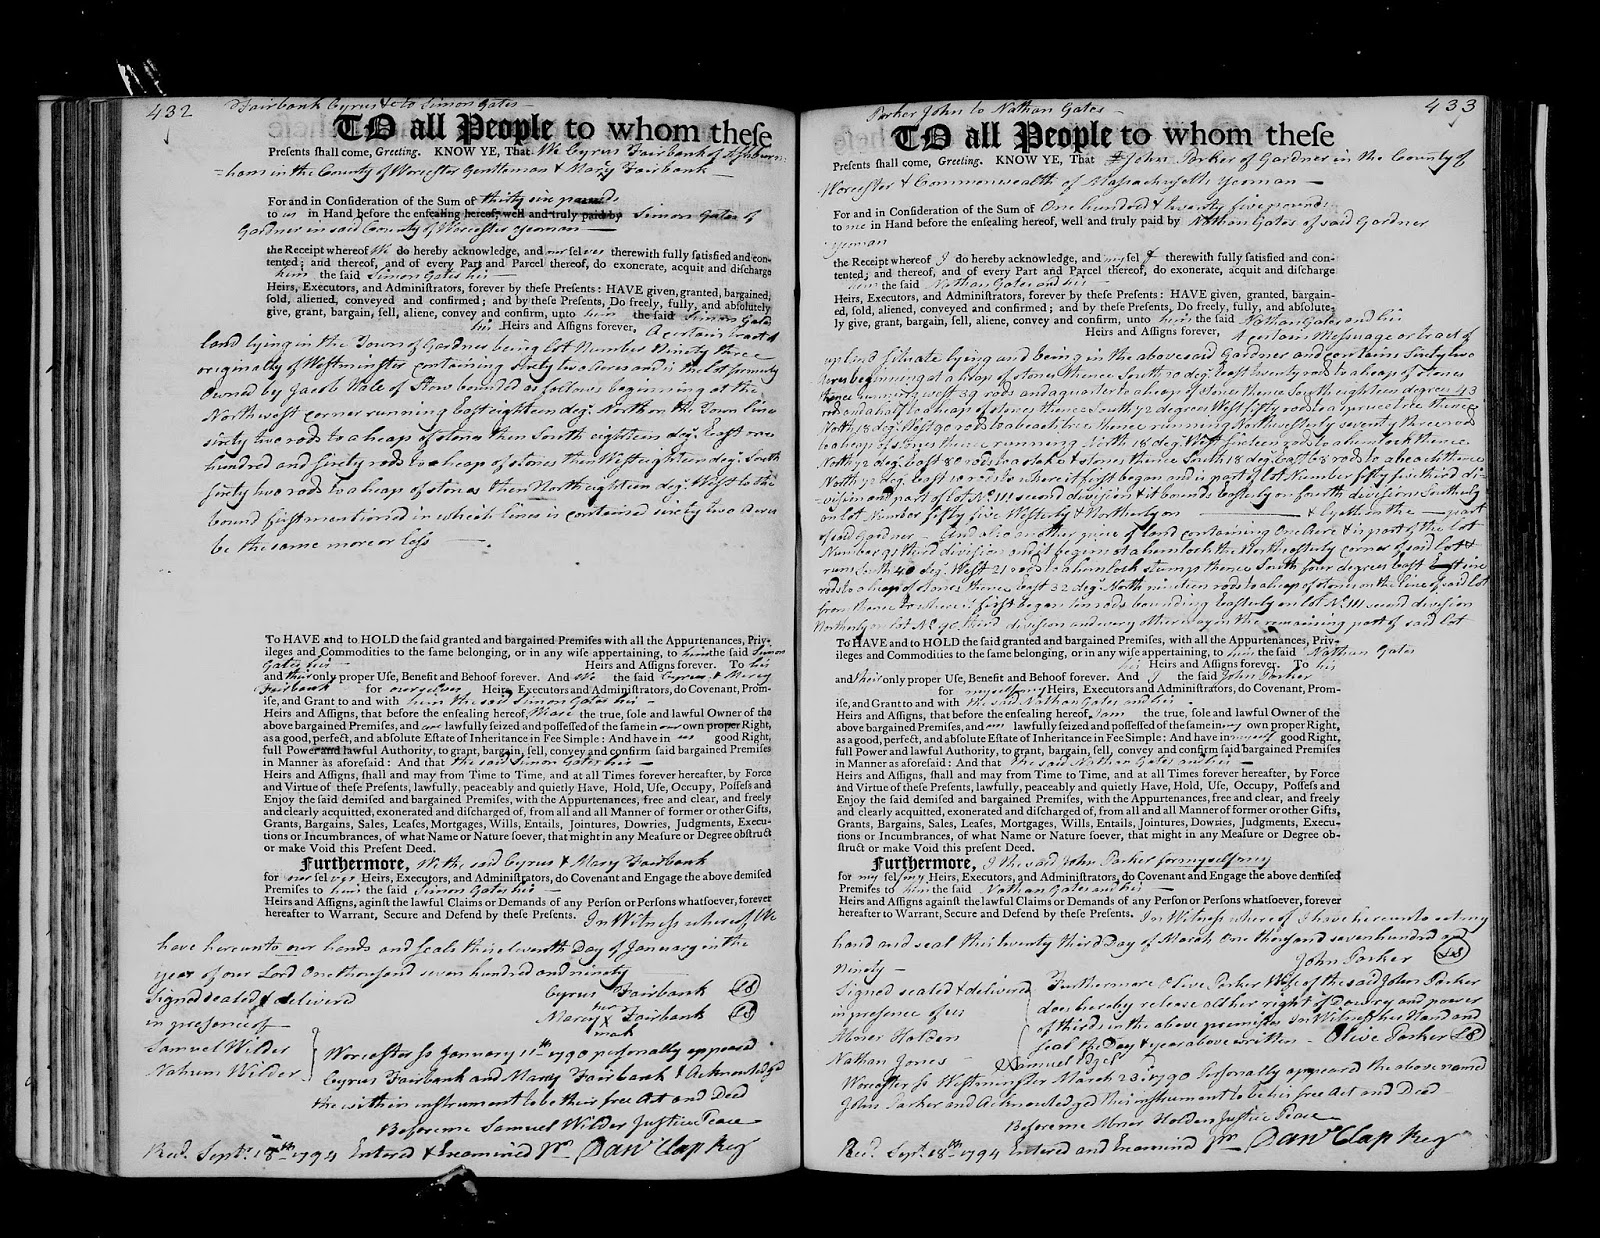 432
Fairbank Cyrus &c to Simon Gates
TO all People to whom theſe
Preſents ſhall come, Greeting. KNOW YE, That We Cyrus Fairbank of Ashburn:
=ham in the County of Worcester Gentleman & Mary Fairbank
For and in Conſideration of the Sum of thirty six pounds
to us in Hand before the enſealing hereof, well and truly paid by Simon Gates of
Gardner in said County of Worcester yeoman
the Receipt whereof We do hereby acknowledge, and our ſelves therewith fully ſatisfied and con-
tented; and thereof, and of every Part and Parcel thereof, do exonerate, acquit and diſcharge
him the ſaid Simon Gates his
Heirs, Executors, and Adminiſtrators, forever by theſe Preſents: HAVE given, granted, bargained,
ſold, aliened, conveyed and confirmed; and by theſe Preſents, Do freely, fully, and abſolutely
give, grant, bargain, ſell, aliene, convey and confirm, unto him the ſaid Simon Gates
his Heirs and Aſſigns forever, A certain tract of
land lying in the Town of Gardner being lot Number Ninety three
originally of Westminster containing sixty two Acres and is the lot formerly
Owned by Jacob Hale of Stow bounded as follows beginning at the
North west corner running East eighteen deg: North on the Town line
sixty two rods to a heap of stones then South eighteen deg: East one
hundred and sixty rods to a heap of stones then West eighteen deg: South
sixty two rods to a heap of stones then North eighteen deg: West to the
bound first mentioned in which lines is contained sixty two Acres
be the same more or less
To HAVE and to HOLD the ſaid granted and bargained Premiſes with all the Appurtenances, Priv-
ileges and Commodities to the ſame belonging, or in any wiſe appertaining, to him the ſaid Simon
Gates his Heirs and Aſſigns forever. To his
and their only proper Uſe, Benefit and Behoof forever. And We the ſaid Cyrus & Mercy
Fairbank for ourselves Heirs, Executors and Adminiſtrators, do Covenant, Prom-
iſe, and Grant to and with him the said Simon Gates his
Heirs and Aſſigns, that before the enſealing hereof, We are the true, ſole and lawful Owner of the
above bargained Premiſes, and are lawfully ſeized and poſſeſſed of the ſame in our own proper Right,
as a good, perfect, and abſolute Eſtate of Inheritance in Fee Simple: And have in us good Right,
full Power and lawful Authority, to grant, bargain, ſell, convey and confirm ſaid bargained Premiſes
in Manner as aforeſaid: And that the said Simon Gates his
Heirs and Aſſigns, ſhall and may from Time to Time, and at all Times forever hereafter, by Force
and Virtue of theſe Preſents, lawfully, peaceably and quietly Have, Hold, Uſe, Occupy, Poſſeſs and
Enjoy the ſaid demiſed and bargained Premiſes, with the Appurtenances, free and clear, and freely
and clearly acquitted, exonerated and diſcharged of, from all and all Manner of former or other Gifts,
Grants, Bargains, Sales, Leaſes, Mortgages, Wills, Entails, Jointures, Dowries, Judgments, Execu-
tions or Incumbrances, of what Name or Nature ſoever, that might in any Meaſure or Degree obſtruct
or make Void this Preſent Deed.
Furthermore, We the said Cyrus & Mary Fairbank
for our ſelves Heirs, Executors, and Adminiſtrators, do Covenant and Engage the above demiſed
Premiſes to him the ſaid Simon Gates his
Heirs and Aſſigns, aginſt the lawful Claims or Demands of any Perſon or Perſons whatſoever, forever
hereafter to Warrant, Secure and Defend by theſe Preſents. In Witness whereof We
have hereunto our hands and seals this eleventh Day of January in the
year of our Lord One thousand seven hundred and ninety
Signed sealed & delivered Cyrus Fairbank LS
in presence of Marcy her X mark Fairbank LS
Samuel Wilder Worcester Ss January 11th 1790 personally appeared
Nahum Wilder Cyrus Fairbank and Marcy Fairbank & Acknowledged
the within instrument to be their free Act and Deed
Before me Samuel Wilder Justice Peace
Recd. Sept. 18th 1794 Entered & Examined pr Danl Clap Reg
433
Parker John to Nathan Gates
TO all People to whom theſe
Preſents ſhall come, Greeting. KNOW YE, That I John Parker of Gardner in the County of
Worcester & Commonwealth of Massachusetts yeoman
For and in Conſideration of the Sum of One hundred & twenty five pounds
to me in Hand before the enſealing hereof, well and truly paid by Nathan Gates of said Gardner
yeoman
the Receipt whereof I do hereby acknowledge, and my ſelf therewith fully ſatisfied and con-
tented; and thereof, and of every Part and Parcel thereof, do exonerate, acquit and diſcharge
him the ſaid Nathan Gates and his
Heirs, Executors, and Adminiſtrators, forever by theſe Preſents: HAVE given, granted, bargain-
ed, ſold, aliened, conveyed and confirmed; and by theſe Preſents, Do freely, fully, and abſolute-
ly give, grant, bargain, ſell, aliene, convey and confirm, unto him the ſaid Nathan Gates and his
Heirs and Aſſigns forever, A certain Messuage or tract of
upland situate lying and being in the above said Gardner and contains Sixty two
Acres beginning at a heap of stones thence South 20 deg: East twenty rods to a heap of stones
thence running west 39 rods and a quarter to a heap of stones thence South eighteen degrees 43
rods and a half to a heap of stones thence South 72 degrees West fifty rods to a spruce tree thence
North 18 deg: West 90 rods to a beach tree thence running Northwesterly seventy three rods
to a heap of stones thence running North 18 deg: West sixteen rods to a hemlock thence
North 72 deg: East 80 rods to a stake & stones thence South 18 deg: East 68 rods to a beach thence
North 72 deg: East 10 rods to where it first began and is part of lot Number fifty five third di-
-vision and part of lot No. 111 second division & it bounds Easterly on fourth division Southerly
on lot Number fifty five Westerly & Northerly on & lyeth in the part
of said Gardner And also another piece of land containing One Acre & is part of the lot
Number 91 third division and it begins at a hemlock the Northeasterly corner of said lot &
runs South 40 deg: West 21 rods to a hemlock stump thence South four degrees East nine
rods to a heap of stones thence East 32 deg: North nineteen rods to a heap of stones on the line of said lot
from thence to where it first began ten rods bounding Easterly on lot No. 111 second division
Northerly on lot No. 90 third division and every other way in the remaining part of said lot
To HAVE and to HOLD the ſaid granted and bargained Premiſes, with all the Appurtenances, Priv-
ileges and Commodities to the ſame belonging, or in any wiſe appertaining, to him the ſaid Nathan Gates
his Heirs and Aſſigns forever. To his
and their only proper Uſe, Benefit and Behoof forever. And I the ſaid John Parker
for myself my Heirs, Executors and Adminiſtrators, do Covenant, Prom-
iſe, and Grant to and with the said Nathan Gates and his
Heirs and Aſſigns, that before the enſealing hereof, I am the true, ſole and lawful Owner of the
above bargained Premiſes, and am lawfully ſeized and poſſeſſed of the ſame in my own proper Right,
as a good, perfect, and abſolute Eſtate of Inheritance in Fee Simple: And have in myself good Right,
full Power and lawful Authority, to grant, bargain, ſell, convey and confirm ſaid bargained Premiſes
in Manner as aforeſaid: And that the said Nathan Gates and his
Heirs and Aſſigns, ſhall and may from Time to Time, and at all Times forever hereafter, by Force
and Virtue of theſe Preſents, lawfully, peaceably and quietly Have, Hold, Uſe, Occupy, Poſſeſs and
Enjoy the ſaid demiſed and bargained Premiſes, with the Appurtenances, free and clear, and freely
and clearly acquitted, exonerated and diſcharged of, from all and all Manner of former or other Gifts,
Grants, Bargains, Sales, Leaſes, Mortgages, Wills, Entails, Jointures, Dowries, Judgments, Execu-
tions or Incumbrances, of what Name or Nature ſoever, that might in any Meaſure or Degree ob-
ſtruct or make Void this preſent Deed.
Furthermore, I the said John Parker for myself my
for my ſelf my Heirs, Executors, and Adminiſtrators, do Covenant and Engage the above demiſed
Premiſes to him the ſaid Nathan Gates and his
Heirs and Aſſigns againſt the lawful Claims or Demands of any Perſon or Perſons whatſoever, forever
hereafter to Warrant, Secure and Defend by theſe Preſents. In Witness whereof I have hereunto set my
hand and seal this twenty third Day of March One thousand seven hundred and
Ninety John Parker LS
Signed sealed & delivered Furthermore Olive Parker Wife of the said John Parker
in presence of us does hereby release all her right of Dowry and power
Abner Holden of thirds in the above premises In Witness her Hand and
Nathan Jones seal the Day & year above written Olive Parker LS
Samuel Edgel
Worcester Ss Westminster March 23: 1790 Personally appeared the above named
John Parker and Acknowledged this instrument to be his free Act and Deed
Before me Abner Holden Justice Peace
Recd. Sept. 18th 1794 Entered and Examined pr Danl Clap Reg